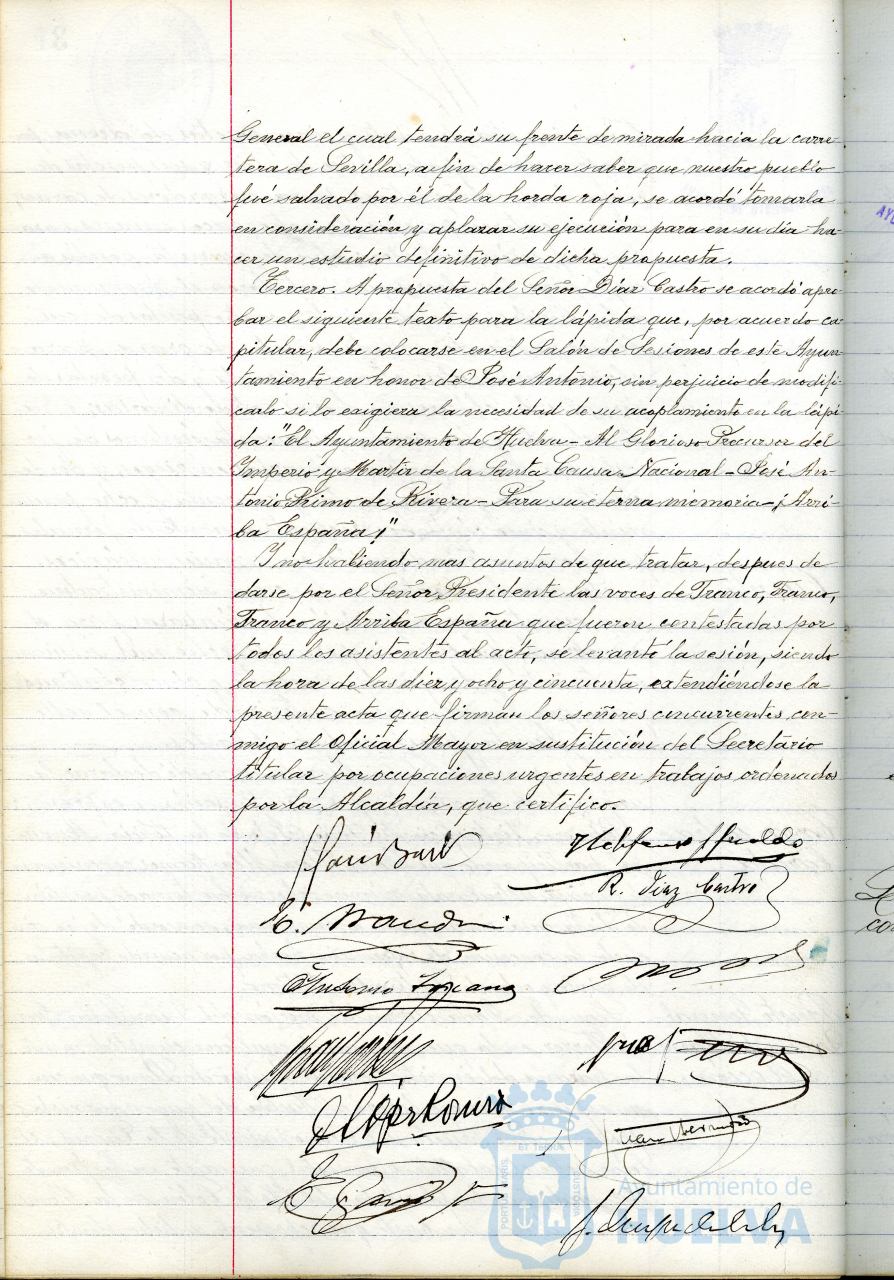 General el cual tendrá su frente de mirada hacia la carre-
tera de Sevilla, a fin de hacer saber que nuestro pueblo
fué salvado por él de la horda roja, se acordó tomarla
en consideración y aplazar su ejecución para en su dia ha-
cer un estudio definitivo de dicha propuesta.
Tercero. A propuesta del Señor Díaz Castro se acordó apro-
bar el siguiente texto para la lápida que, por acuerdo ca-
pitular, debe colocarse en el Salón de Sesiones de este Ayun-
tamiento en honor de José Antonio, sin perjuicio de modifi-
carlo si lo exigiera la necesidad de su acoplamiento en la lápi-
da: "El Ayuntamiento de Huelva – Al Glorioso Precursor del
Imperio y Martir de la Santa Causa Nacional – José An-
tonio Primo de Rivera – Para su eterna memoria – ¡Arri-
ba España!"
Y no habiendo mas asuntos de que tratar, despues de
darse por el Señor Presidente las voces de Franco, Franco,
Franco y Arriba España que fueron contestadas por
todos los asistentes al acto, se levantó la sesión, siendo
la hora de las diez y ocho y cincuenta, extendiéndose la
presente acta que firman los señores concurrentes con-
migo el Oficial Mayor en sustitución del Secretario
titular por ocupaciones urgentes en trabajos ordenados
por la Alcaldía, que certifico.
R. Diaz Castro
Ayuntamiento de
HUELVA